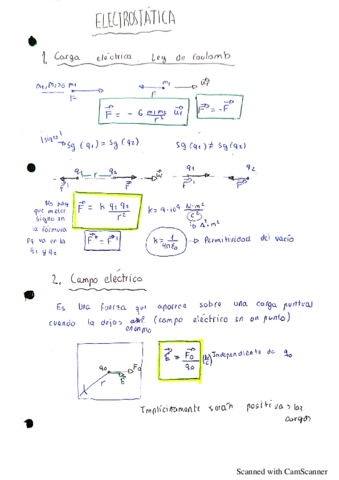 ELECTROSTÁTICA
1. Carga eléctrica Ley de Coulomb
m₁, m₂ > 0 m₁ m₁
F F
F⃗ = - G m₁m₂/r² u⃗r F⃗' = -F⃗
Signo → Sg (q₁) = Sg (q₂) Sg (q₁) ≠ Sg (q₂)
q₁ r q₂ q₁ q₂
No hay
que meter
signo en
la fórmula
pq va en la
q₁ y q₂
F⃗ = k q₁ q₂/r² k = 9·10⁹ N·m²/C²
→ A²·m²
k = 1/4πε₀ → Permitividad del vacío
2. Campo eléctrico
Es una fuerza que aparece sobre una carga puntual
cuando la dejas en un campo (campo eléctrico en un punto)
q₀ F₀
E⃗
r
E⃗ = F⃗₀/q₀ Independiente de q₀
Implícitamente serán positivas las
cargas
Scanned with CamScanner